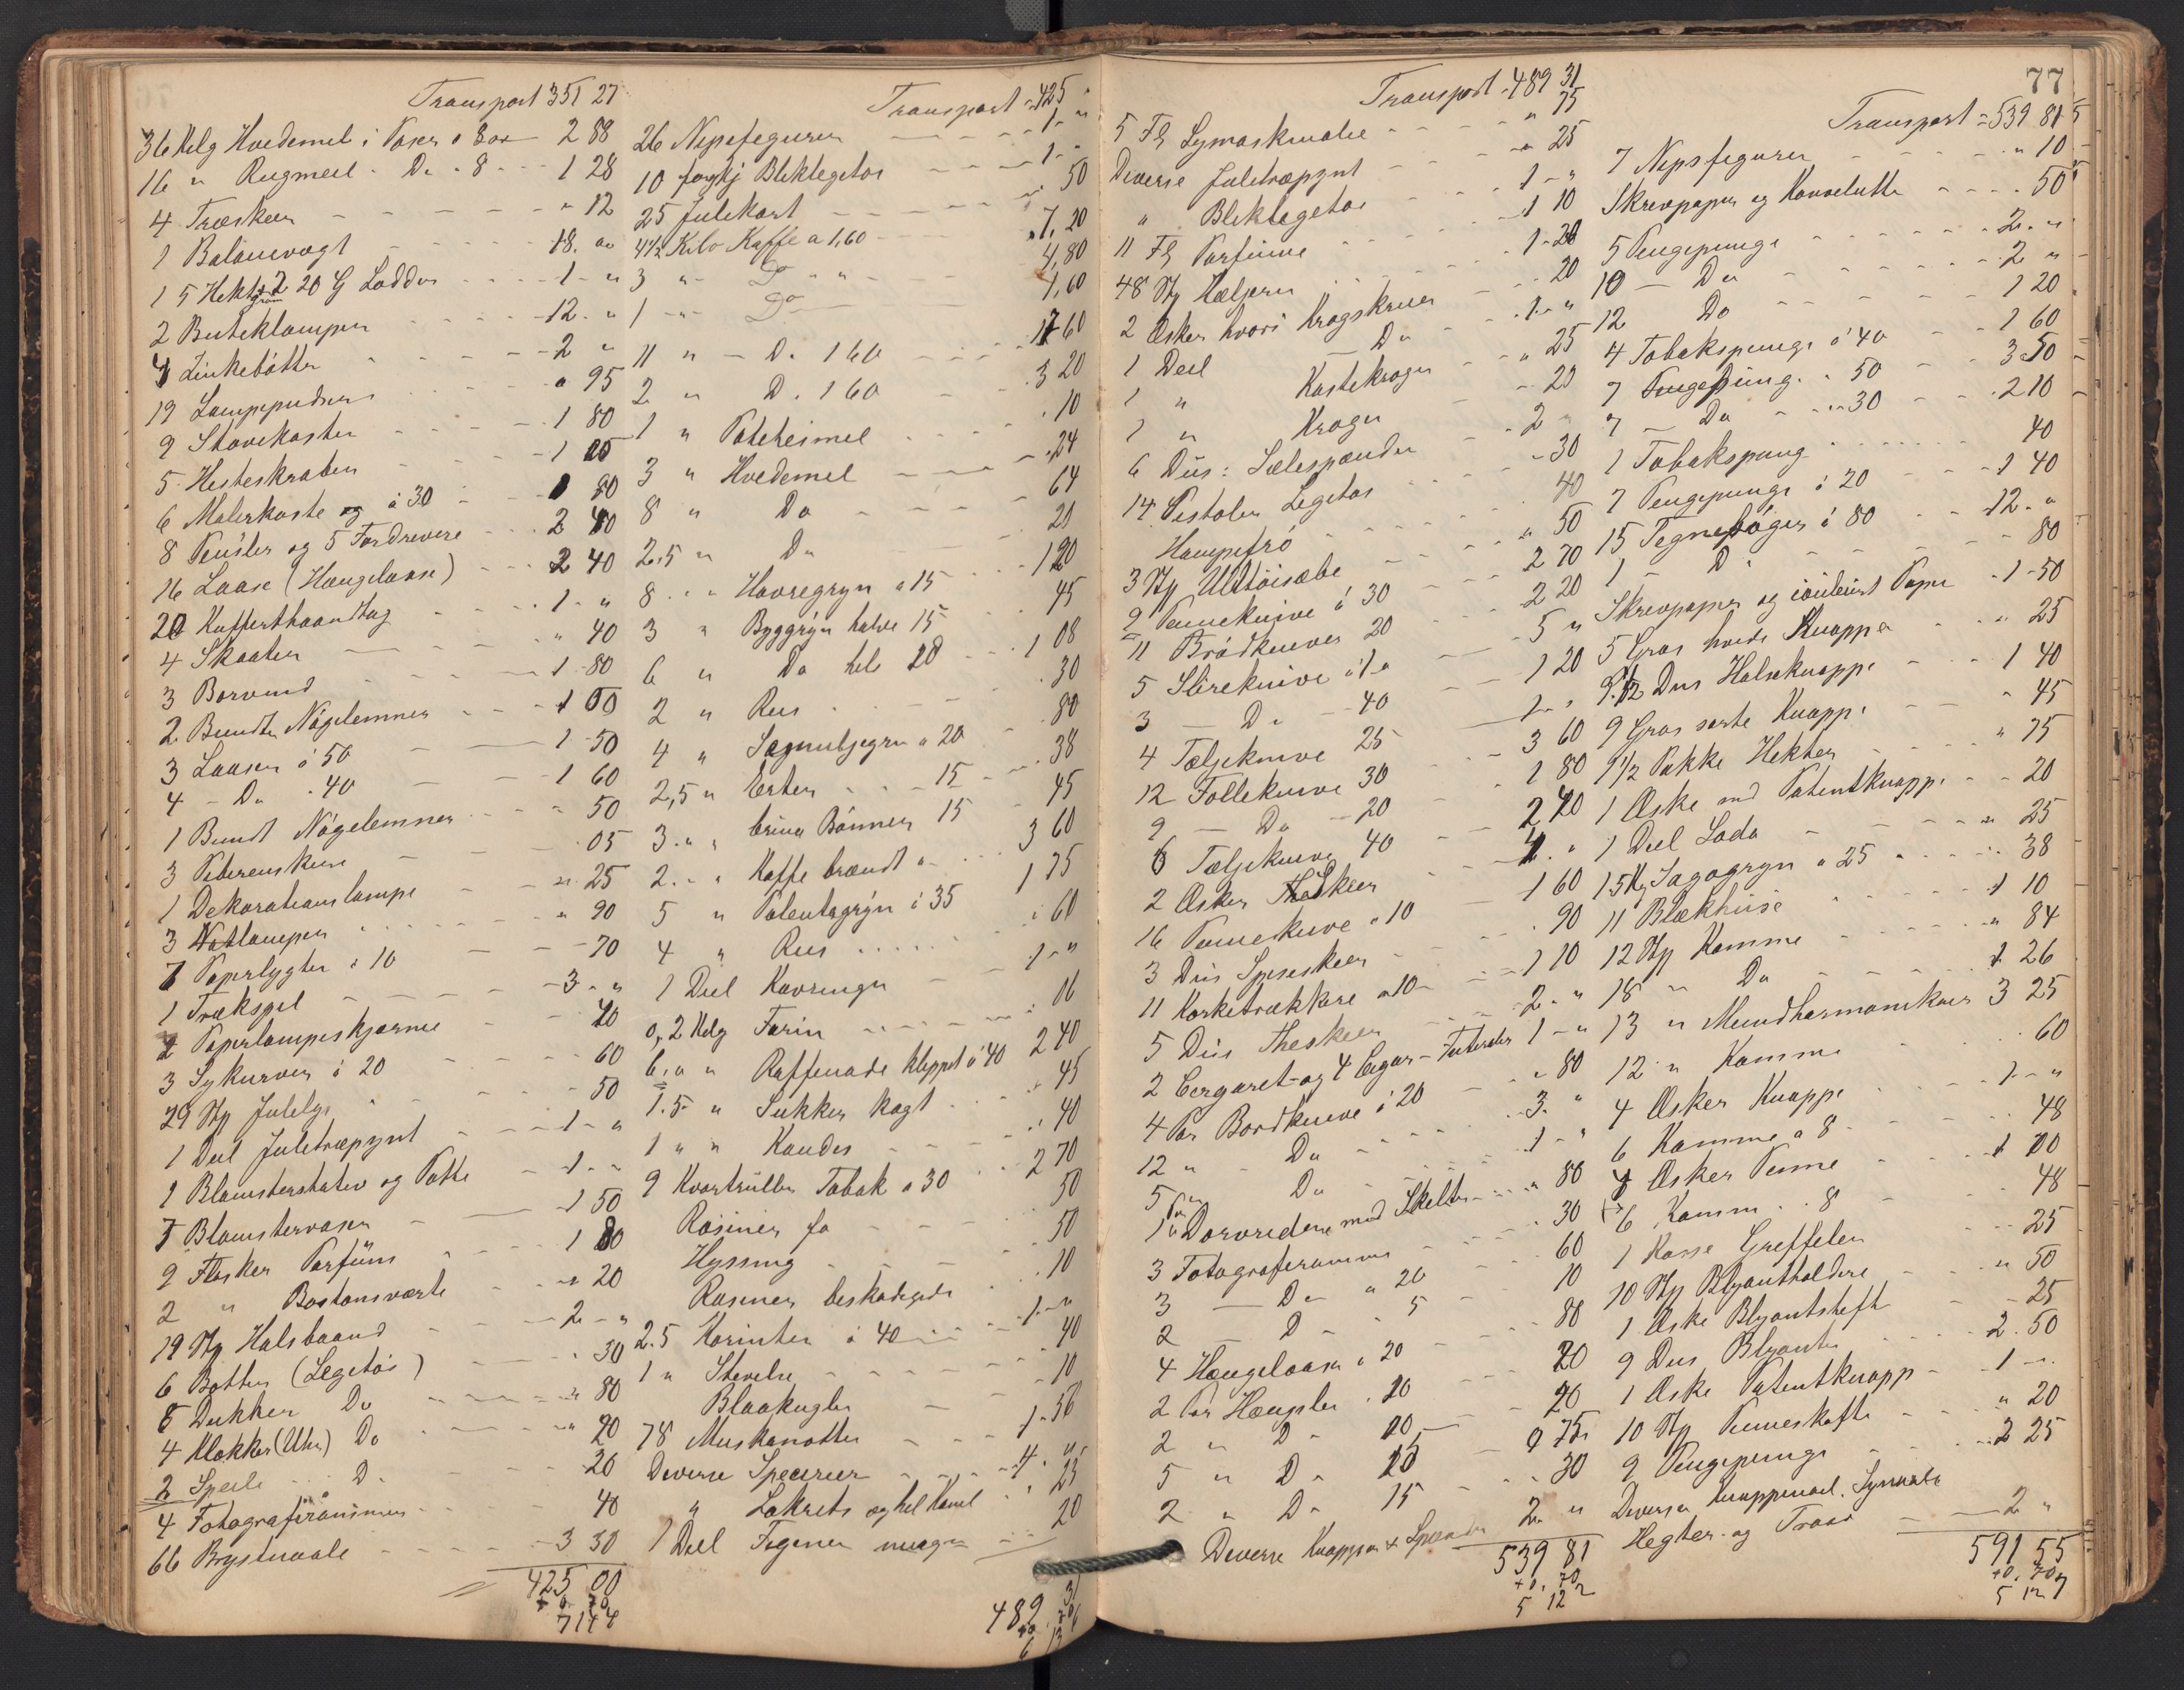 Transport 351 27
36 Kelg Hvedemel i Poser a 8 øre 2 88
16 " Rugmeel - Do - 8 - 1 28
4 Træskeer " 12
1 Balancevægt 18. 00
1 5 Hektogram 2 20 G Lodder 1 - "
2 Butiklamper 12 - "
4 Zinkebøtter 2 "
19 Lampepudser " 95
9 Støvekoster 1 80
5 Hesteskraber 1 25
6 Malerkoste og à 30 1 80
8 Pensler og 5 Fordrevere 2 40
16 Laase (Hængelaase) 2 40
20 Kufferthaandtag 1 - "
4 Skaaler " 40
3 Borvind 1 - 80
2 Bundter Nøgelemner 1 00
3 Laaser á 50 1 50
4 - Do - 40 1 60
1 Bundt Nøgelemner " 50
3 05
1 Dekorationslampe " 25
3 Natlamper " 90
7 Papirlygter á 10 70
1 Trækspil 3 - "
2 Papirlampeskjærme 20
3 Sykurver á 20 60
29 Stk Julelys 50
1 Deel Juletræpynt 1 - "
1 Blomsterstativ og Potte 1 - "
7 Blomstervaser 1 50
9 Flasker Parfüme 1 80
2 " Bostonsværte " 20
19 Stk Halsbaand 2 - "
6 Rotter (Legetøi) " 30
8 Dukker Do " 80
4 Klokker (Uhr) Do " 20
2 Speile Do 20
4 Fotograferammer 40
66 Brystnaale 3 30
425 00
+ 0. 70
7144
Transport - 425 "
26 Nipsfigurer 1 - "
10 forskj Bliklegetøi 1 - "
25 Julekort 50
4 1/2 Kilo Kaffe a 1,60 7,20
3 " Do " 4,80
1 " Do 1,60
11 " - Do 1 60 17 60
2 " Do 1 60 3 20
1 " Potetesmel 10
3 " Hvedemel 24
8 " Do 64
2,5 " Do 20
8 " Havregryn a 15 1 20
3 " Byggryn halve 15 45
6 " Do hele 18 1 08
2 " Riis 30
4 " Semuljegryn a 20 80
2,5 " Erter 15 38
3 " brune Bønner 15 45
2 " Kaffe brændt 3 60
5 " Potetesgryn á 35 1 75
4 " Riis 60
1 Deel Kavringer 1 - "
0,2 Kelg Farin 16
6,0 " Raffinade kleppet á 40 2 40
1.5 " Sukker hagt 45
1 " Kandis 40
9 Kvartruller Tobak a 30 2 70
Rosiner fo 50
Hyssing 50
Rosiner beskadigede 10
2.5 Korinter á 40 1 - "
1 " Stivelse 40
Blaakugler 10
78 Muskanøtter 1 - 56
Diverse Specerier 4 "
" Lakrets og hel Kanel " 25
1 Deel Fegener 20
489 31
Transport - 489 31
5 Fl Symaskinolie " 75
Diverse Juletræpynt " 25
" Bliklegetøi 1 - "
11 Fl Parfume 1 10
48 Stk Hæljern 1 - 20
2 Æsker hvori Kragskruer 20
1 Deel - Do 1 - "
1 " Kastekroger " 25
1 " Kroger 20
6 Dus: Sælespænder 2 "
14 Pistoler Legetøi 30
Hampefrø 40
3 Stk Uldtøisæbe " 50
9 Pennekniver á 30 2 70
11 Brødkniver 20 2 20
5 Slirekniver á 1 " 5 "
3 - Do - 40 1 20
4 Tæljekniver 25 1 - "
12 Follekniver 30 3 60
9 - Do - 20 1 80
6 Tæljekniver 40 2 40
2 Æsker Theskeer 4 - "
16 Pennekniver á 10 1 60
3 Dus Spiseskeer 90
11 Korketrækkere a 10 1 10
5 Dus Theskeer 2 - "
2 Cigaret- og 4 Cigar-Futeraler 1 - "
4 Par Bordkniver á 20 " 80
12 " - Do 3 - "
5 " Do 1 - "
1 Dørvridere med Skilter " 80
3 Fotograferammer 30
3 - Do " 20 60
2 - Do - 5 10
4 Hængelaase á 20 80
2 Par Hængsler " 10 20
2 " Do 10 20
5 " Do 15 " 75
2 " Do 15 30
Diverse Knapper & Spænder 2 "
539 81
+ 0. 70
5 12
77
Transport = 539 81
7 Nipsfigurer " 10
Skrivpapir og Konvolutter 50
5 Pengepunge 2 - "
10 - Do 2 "
12 Do 1 20
4 Tobakspunge á 40 1 60
7 Pengepung. " 50 3 50
7 - Do - " 30 2 10
1 Tobakspung 40
7 Pengepunge á 20 1 40
15 Tegnebøger á 80 12 - "
1 - D - 80
Skrivpapir og Papir 1 - 50
5 Gros hvide Knapper " 25
9 1/2 Dus Halsknapper 1 40
9 Gros sorte Knapper " 45
9 1/2 Pakke Hekter " 75
1 Æske med Patentknapper 20
1 Deel Soda " 25
1.5 Kg Sagogryn " 25 38
11 Blækhuse 1 10
12 Stk Kamme " 84
18 " Do 1 26
13 " Mundharmonikaer 3 25
12 " Kamme 60
4 Æsker Knapper 1 - "
6 Kamme a 8 48
4 Æsker Penne 1 00
6 Kamme " 8 48
1 Kasse Greffeler 25
10 Stk Blyantholdere " 50
1 Æske Blyantshefter 25
9 Dus Blyanter 2. 50
1 Æske Patentknapper 1 - "
10 Stk Penneskafter " 20
9 Pengepunge 2 25
Diverse Knappenaale. Synaale
Hegter og Traad 2 "
591 55
+0, 70
5 12 7